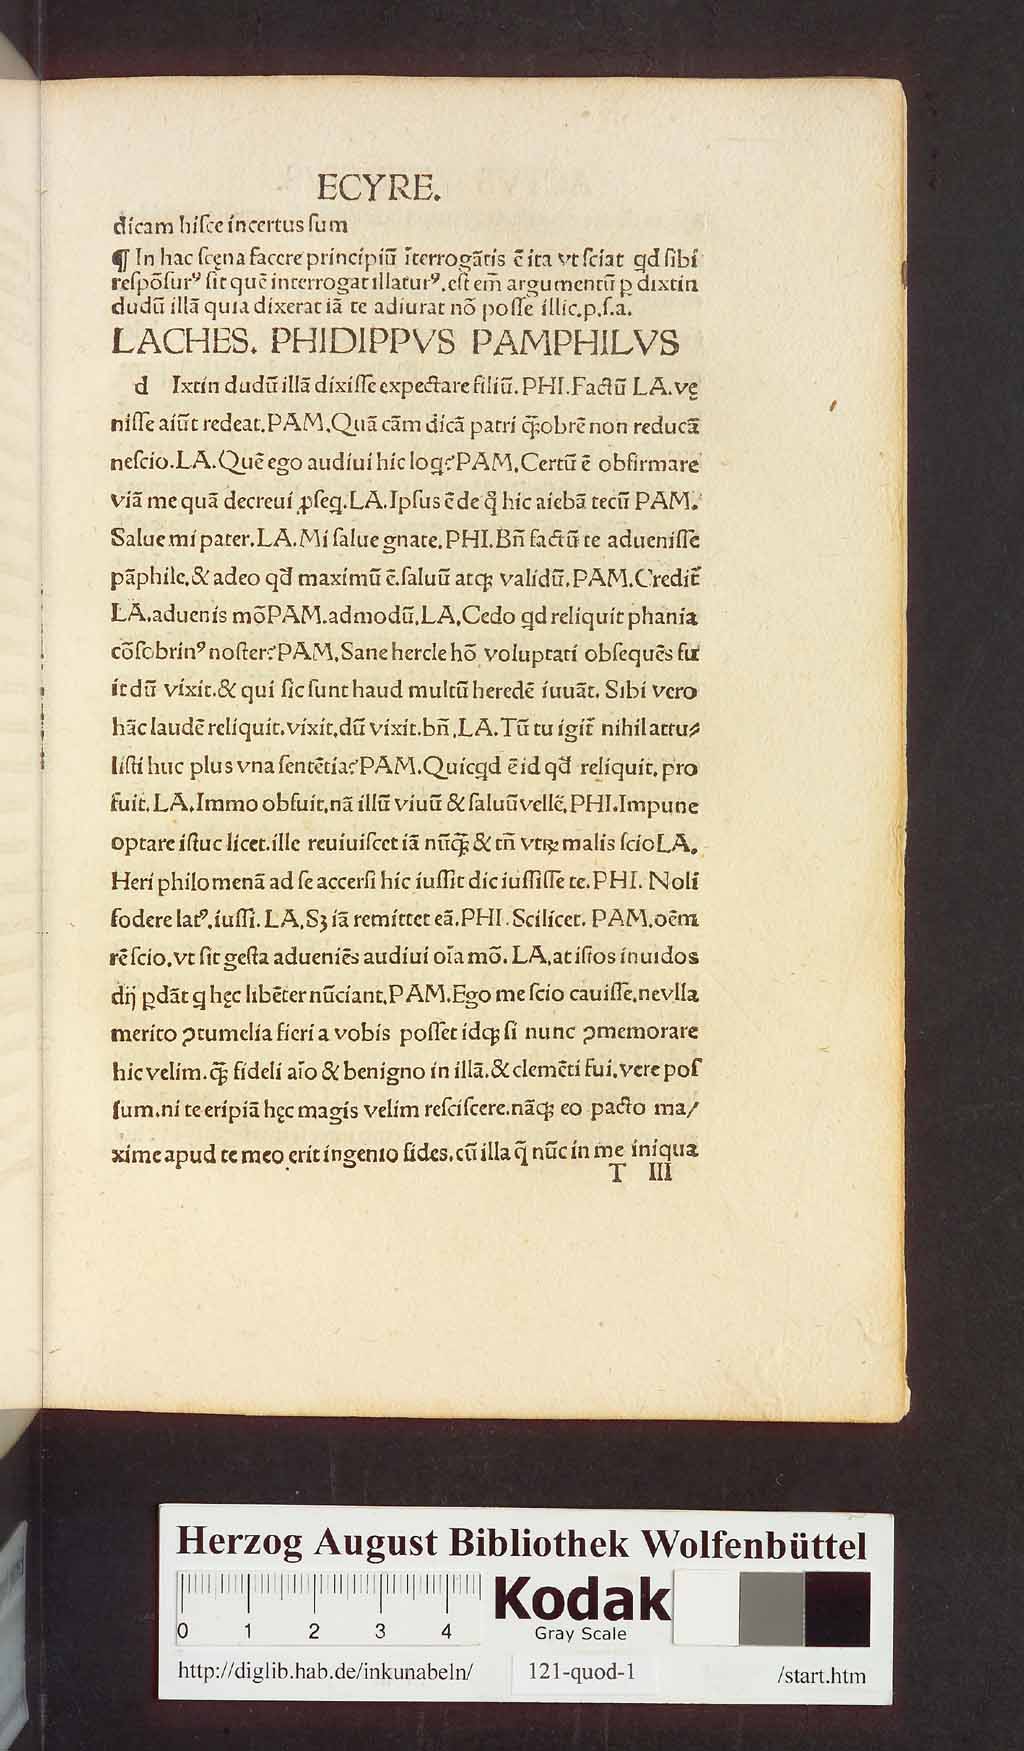 ECYRE.
dicam hiſce incertus ſum
¶ In hac ſcęna facere principiū īterrogātis ē ita vt ſciat qd ſibi
reſpōſurꝰ ſit quē interrogat illaturꝰ. eſt em̄ argumentū ꝑ dixtin
dudū illā quia dixerat iā te adiurat nō poſſe illic.p.ſ.a.
LACHES. PHIDIPPVS PAMPHILVS
d Ixtin dudū illā dixiſſe expectare filiū. PHI. Factū LA. vę
niſſe aiūt redeat. PAM. Quā cām dicā patri q̄obrē non reducā
neſcio. LA. Quē ego audiui hic loq? PAM. Certū ē obfirmare
viā me quā decreui ꝓſeq. LA. Ipſus ē de q̊ hic aiebā tecū PAM.
Salue mi pater. LA. Mi ſalue gnate. PHI. Bn̄ factū te adueniſſe
pāphile. & adeo qđ maximū ē. ſaluū atqꝫ validū. PAM. Credit̄
LA. aduenis mō PAM. admodū. LA. Cedo qd reliquit phania
cōſobrinꝰ noſter? PAM. Sane hercle hō voluptati obſequēs fu
it dū vixit. & qui ſic ſunt haud multū heredē iuuāt. Sibi vero
hāc laudē reliquit. vixit, dū vixit. bn̄. LA. Tū tu igit̄ nihil attu⸗
liſti huc plus vna ſentētia? PAM. Quicqd ē id qđ reliquit. pro
fuit. LA. Immo obfuit. nā illū viuū & ſaluū vellē. PHI. Impune
optare iſtuc licet. ille reuiuiſcet iā nūq̄ & tn̄ vtꝝ malis ſcio LA.
Heri philomenā ad ſe accerſi hic iuſſit dic iuſſiſſe te. PHI. Noli
fodere latꝰ. iuſſi. LA. Sꝫ iā remittet eā. PHI. Scilicet. PAM. oēm
rē ſcio. vt ſit geſta adueniēs audiui oīa mō. LA. at iſtos inuidos
dij ꝑdāt q hęc libēter nūciant. PAM. Ego me ſcio cauiſſe. ne vlla
merito ꝯtumelia fieri a vobis poſſet idqꝫ ſi nunc ꝯmemorare
hic velim. q̄ fideli aīo & benigno in illā. & clemēti fui. vere poſ
ſum. ni te eripiā hęc magis velim reſciſcere. nāqꝫ eo pacto ma/
xime apud te meo erit ingenio fides. cū illa q̄ nūc in me iniqua
T III
Herzog August Bibliothek Wolfenbüttel
0 1 2 3 4
Kodak
Gray Scale
http://diglib.hab.de/inkunabeln/ 121-quod-1 /start.htm